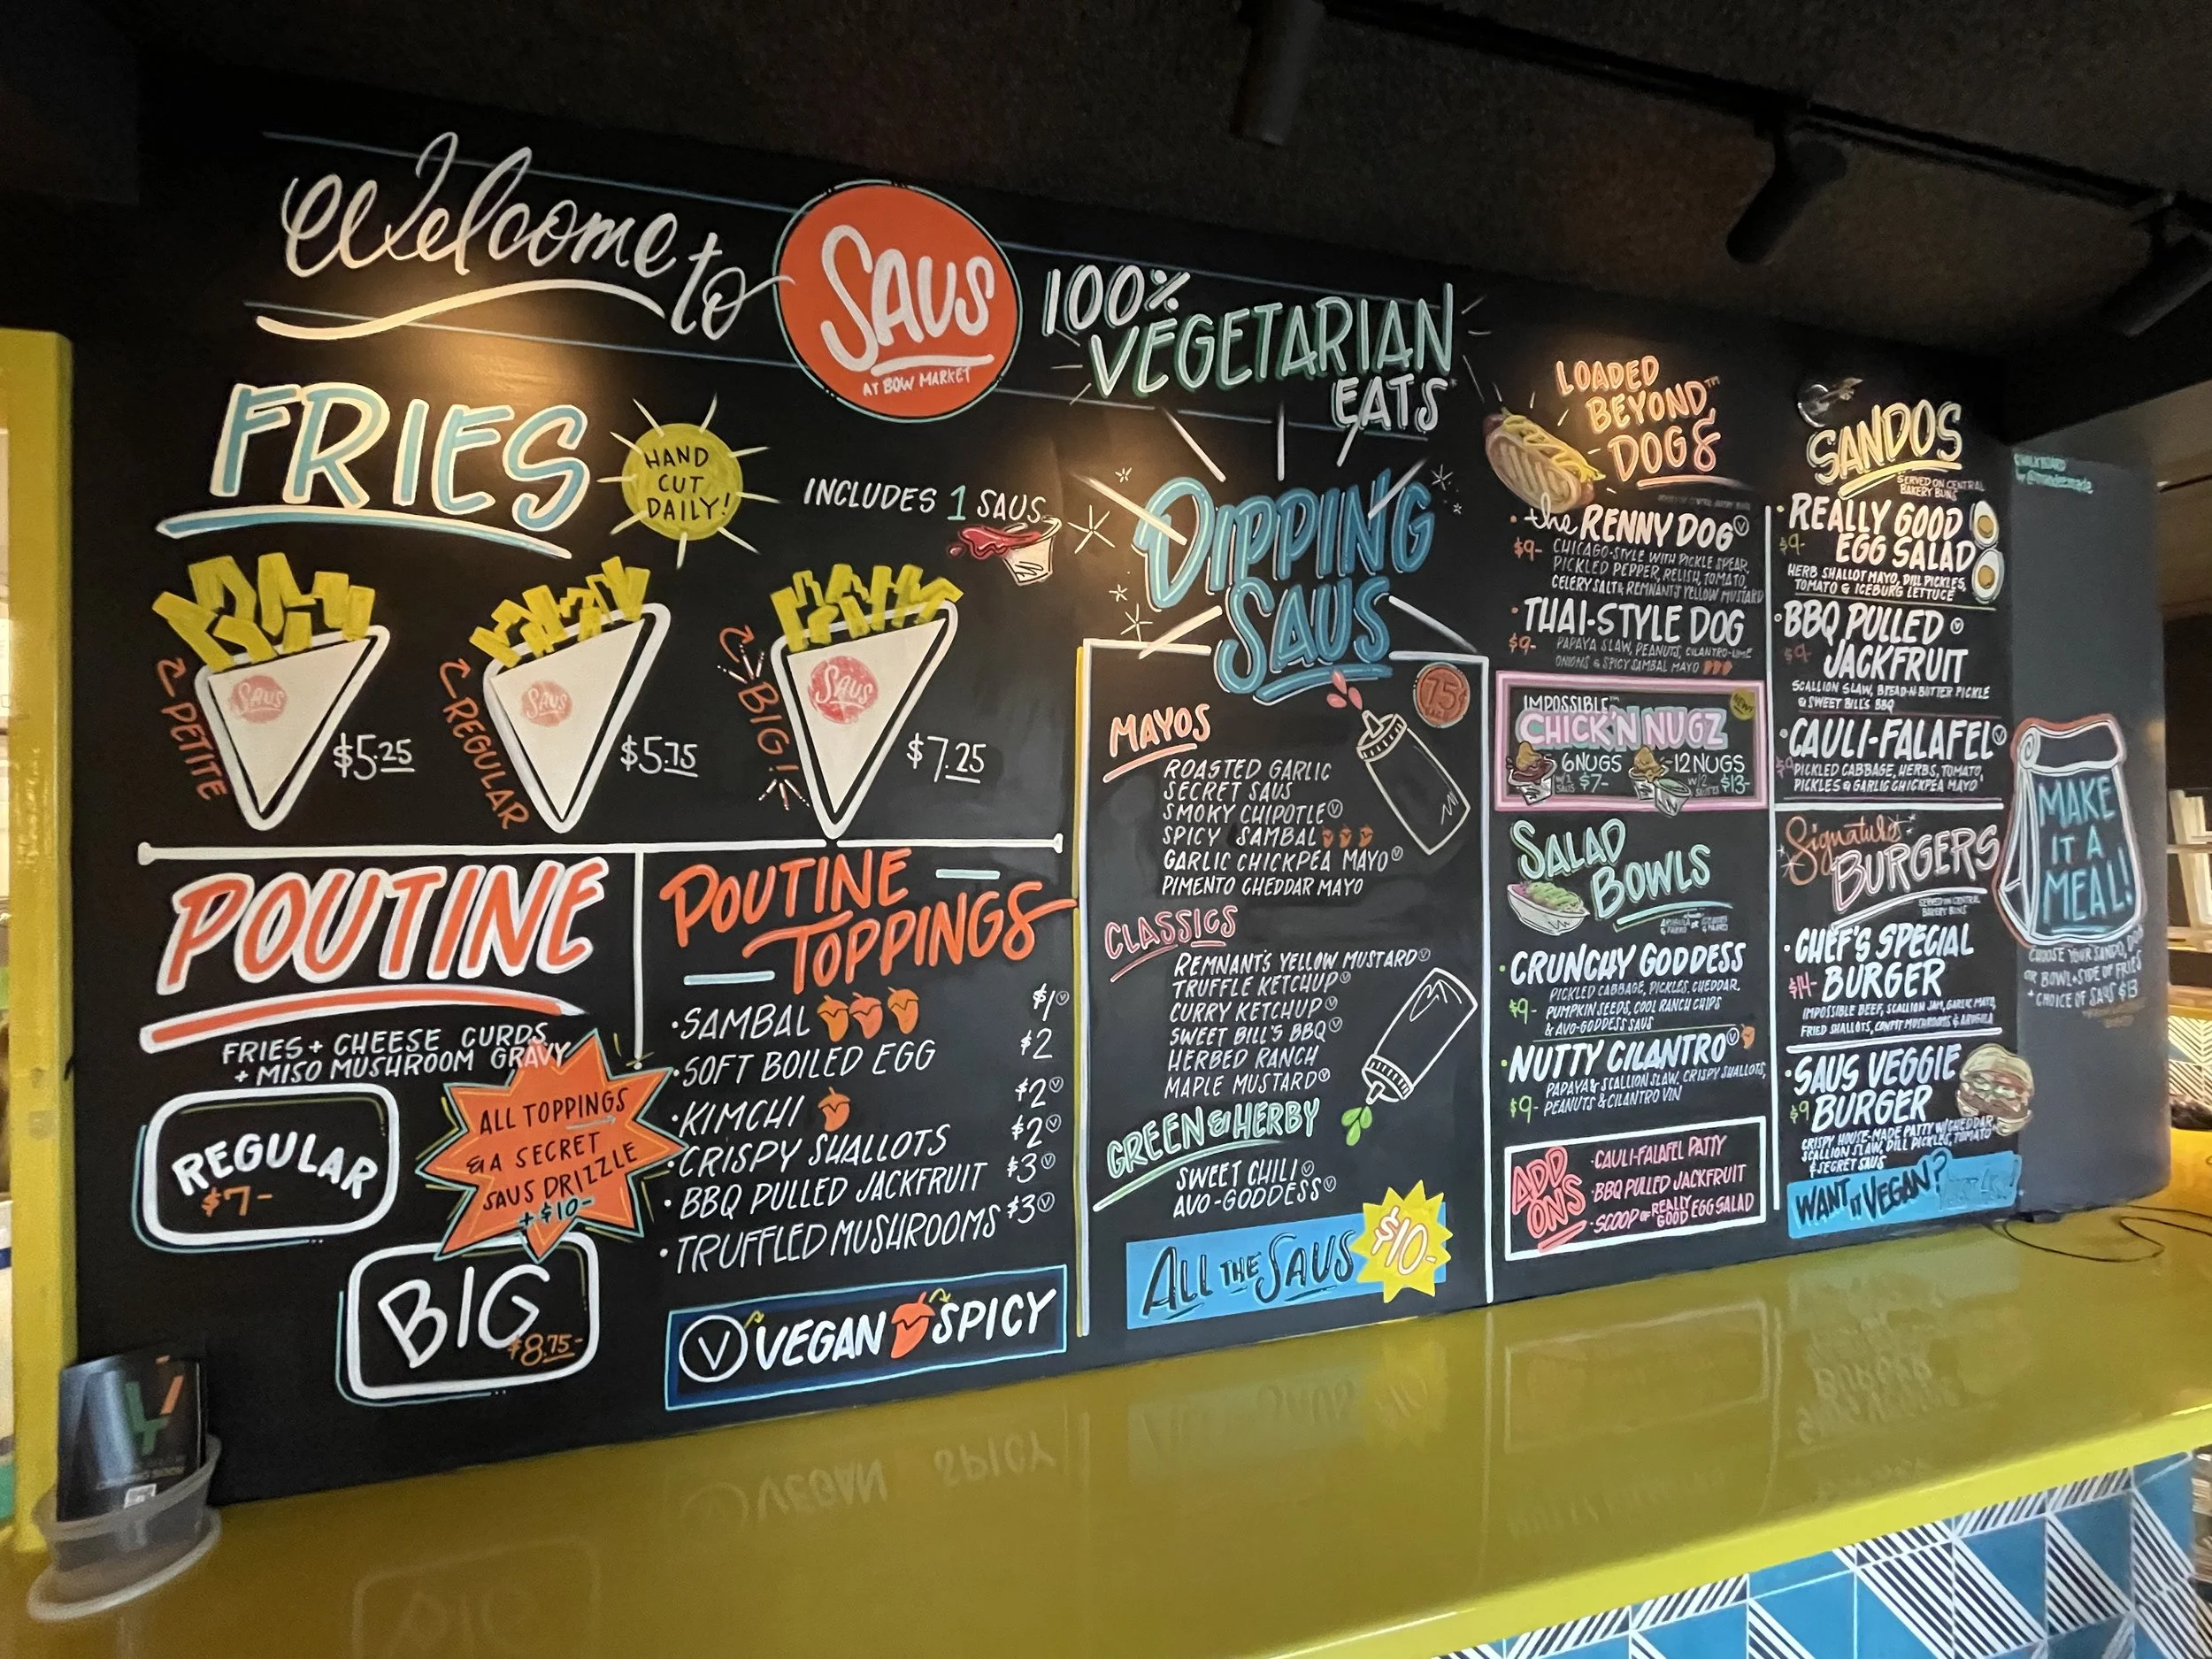 Welcome to
SAUS
AT BOW MARKET
100%
VEGETARIAN
EATS
FRIES
HAND
CUT
DAILY!
INCLUDES 1 SAUS
SAUS
PETITE
$5.25
SAUS
REGULAR
$5.75
SAUS
BIG!
$7.25
POUTINE
FRIES + CHEESE CURDS
+ MISO MUSHROOM GRAVY
REGULAR
$7-
ALL TOPPINGS
& A SECRET
SAUS DRIZZLE
+$10-
BIG
$8.75-
POUTINE
TOPPINGS
·SAMBAL $1 V
·SOFT BOILED EGG $2
·KIMCHI $2 V
·CRISPY SHALLOTS $2 V
·BBQ PULLED JACKFRUIT $3 V
·TRUFFLED MUSHROOMS $3 V
V VEGAN SPICY
DIPPING
SAUS
75¢
MAYOS
ROASTED GARLIC
SECRET SAUS
SMOKY CHIPOTLE V
SPICY SAMBAL
GARLIC CHICKPEA MAYO V
PIMENTO CHEDDAR MAYO
CLASSICS
REMNANT'S YELLOW MUSTARD V
TRUFFLE KETCHUP V
CURRY KETCHUP V
SWEET BILL'S BBQ V
HERBED RANCH
MAPLE MUSTARD V
GREEN & HERBY
SWEET CHILI V
AVO-GODDESS V
ALL THE SAUS $10-
LOADED
BEYOND™
DOGS
·the RENNY DOG V
$9- CHICAGO-STYLE WITH PICKLE SPEAR,
PICKLED PEPPER, RELISH, TOMATO,
CELERY SALT & REMNANT'S YELLOW MUSTARD
·THAI-STYLE DOG
$9- PAPAYA SLAW, PEANUTS, CILANTRO-LIME
ONIONS & SPICY SAMBAL MAYO
IMPOSSIBLE™
CHICK'N NUGZ
NEW!
6 NUGS
W/1 SAUS $7-
12 NUGS
W/2 $13-
SALAD
BOWLS
·CRUNCHY GODDESS
PICKLED CABBAGE, PICKLES, CHEDDAR,
$9- PUMPKIN SEEDS, COOL RANCH CHIPS
& AVO-GODDESS SAUS
·NUTTY CILANTRO V
PAPAYA & SCALLION SLAW, CRISPY SHALLOTS,
$9- PEANUTS & CILANTRO VIN
ADD
ONS
·CAULI-FALAFEL PATTY
·BBQ PULLED JACKFRUIT
·SCOOP OF REALLY GOOD EGG SALAD
SANDOS
SERVED ON CENTRAL
BAKERY BUNS
·REALLY GOOD
$9- EGG SALAD
HERB SHALLOT MAYO, DILL PICKLES,
TOMATO & ICEBURG LETTUCE
·BBQ PULLED V
$9- JACKFRUIT
SCALLION SLAW, BREAD-N-BUTTER PICKLE
& SWEET BILL'S BBQ
·CAULI-FALAFEL V
$9 PICKLED CABBAGE, HERBS, TOMATO,
PICKLES & GARLIC CHICKPEA MAYO
Signature
BURGERS
SERVED ON CENTRAL
BAKERY BUNS
·CHEF'S SPECIAL
$14- BURGER
IMPOSSIBLE BEEF, SCALLION JAM, GARLIC MAYO,
FRIED SHALLOTS, CONFIT MUSHROOMS & ARUGULA
·SAUS VEGGIE
$9 BURGER
CRISPY HOUSE-MADE PATTY W/CHEDDAR,
SCALLION SLAW, DILL PICKLES, TOMATO
& SECRET SAUS
WANT IT VEGAN?
CHALKBOARD
MAKE
IT A
MEAL!
CHOOSE YOUR SANDO, DOG
OR BOWL + SIDE OF FRIES
+ CHOICE OF SAUS $13